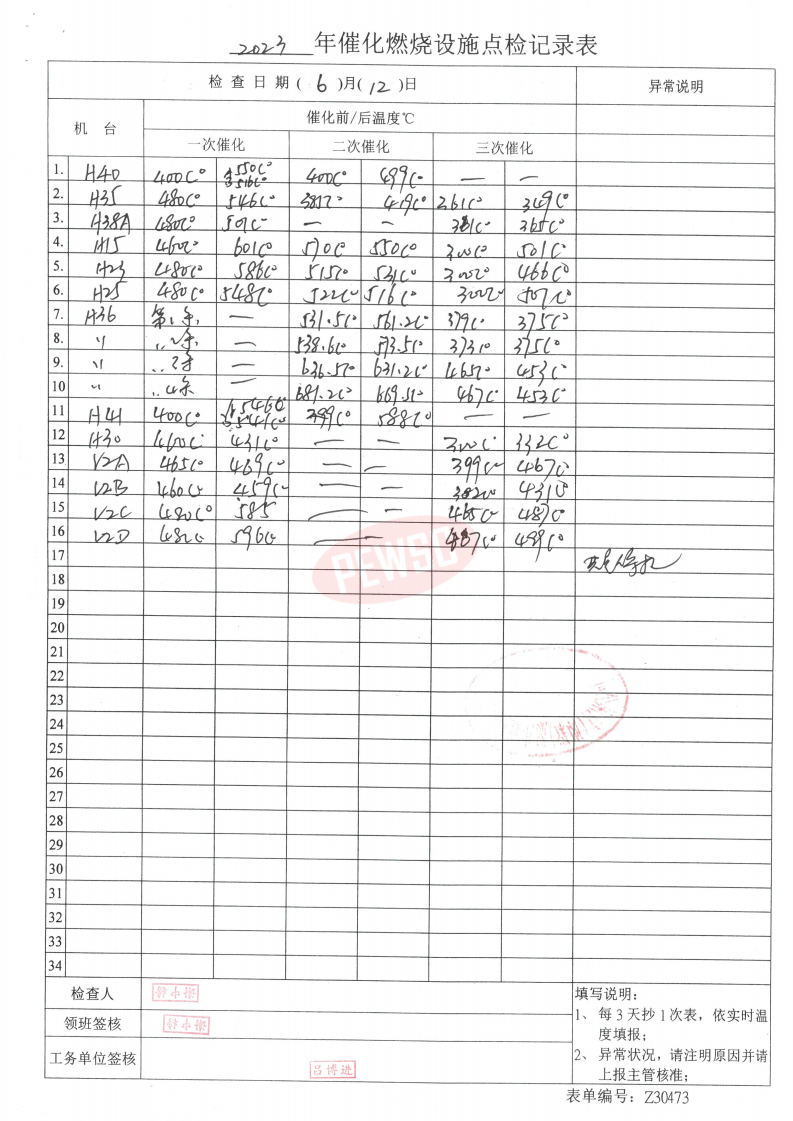 2023 年催化燃烧设施点检记录表
检查日期( 6 )月( 12 )日 异常说明
机 台 催化前/后温度℃
一次催化 二次催化 三次催化
1. H40 400C° 550C° 516C° 400C° 499C° — —
2. H35 480C° 546C° 419C° 261C° 349C°
3. H38A 480C° 501C° — — 365C°
4. H15 460C° 601C° 510C° 550C° 300C° 501C°
5. H23 480C° 586C° 515C° 531C° 300C° 466C°
6. H25 480C° 548C° 522C° 516C° 300C° 507C°
7. H36 — 531.5C° 561.2C° 379C° 375C°
8. 〃 — 538.6C° 573.5C° 373C° 375C°
9. 〃 — 636.5C° 631.2C° 465C° 453C°
10 〃 — 681.2C° 669.5C° 467C° 453C°
11 H41 400C° 546C° 541C° 399C° 588C° — —
12 H30 460C° 431C° — — 300C° 332C°
13 V2A 465C° 469C° — — 399C° 467C°
14 V2B 460C° 459C° — — 382C° 431C°
15 V2C 480C° 585 — — 465C° 487C°
16 V2D 482C° 596C° — — 487C° 499C°
PEWSC
17
18
19
20
21
22
23
24
25
26
27
28
29
30
31
32
33
34
检查人
领班签核
工务单位签核 吕博进
填写说明：
1、每 3 天抄 1 次表，依实时温
度填报；
2、异常状况，请注明原因并请
上报主管核准；
表单编号：Z30473